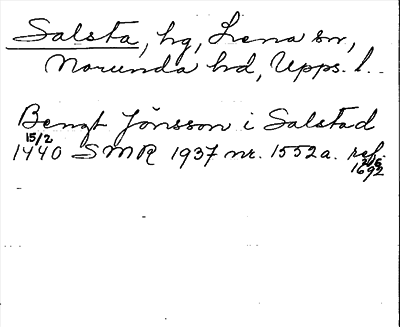 Salsta, hg, Lena sn,
Norunda hd, Upps. l.
Bengt Jönsson i Salstad
15/2
1440 SMR 1937 nr. 1552a. ref.
2/6
1692